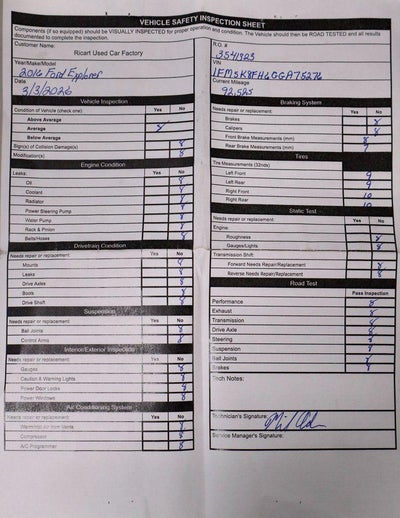 VEHICLE SAFETY INSPECTION SHEET
Components (if so equipped) should be VISUALLY INSPECTED for proper operation and condition. The Vehicle should then be ROAD TESTED and all results
documented to complete the inspection.
Customer Name:
Ricart Used Car Factory
Year/Make/Model
2016 Ford Explorer
Date
3/3/2026
Vehicle Inspection
Condition of Vehicle (check one): Yes No
Above Average
Average 8
Below Average
Sign(s) of Collision Damage(s) 8
Modification(s) 8
Engine Condition
Leaks: Yes No
Oil 8
Coolant 8
Radiator 8
Power Steering Pump 8
Water Pump 8
Rack & Pinion 8
Belts/Hoses 8
Drivetrain Condition
Needs repair or replacement: Yes No
Mounts 8
Leaks 8
Drive Axles 8
Boots 8
Drive Shaft 8
Suspension
Needs repair or replacement: Yes No
Ball Joints 8
Control Arms 8
Interior/Exterior Inspection
Needs repair or replacement: Yes No
Gauges 8
Caution & Warning Lights 8
Power Door Locks 8
Power Windows 8
Air Conditioning System
Needs repair or replacement: Yes No
Warm/No air from Vents 8
Compressor 8
A/C Programmer 8
R.O. #
3541323
VIN
1FM5K8FH6GGA75276
Current Mileage
92,525
Braking System
Needs repair or replacement: Yes No
Brakes 8
Calipers 8
Front Brake Measurements (mm) 8
Rear Brake Measurements (mm) 7
Tires
Tire Measurements (32nds)
Left Front 9
Left Rear 9
Right Front 10
Right Rear 10
Static Test
Needs repair or replacement: Yes No
Engine:
Roughness 8
Gauges/Lights 8
Transmission Shift:
Forward Needs Repair/Replacement 8
Reverse Needs Repair/Replacement 8
Road Test
Pass Inspection
Performance 8
Exhaust 8
Transmission 8
Drive Axle 8
Steering 8
Suspension 8
Ball Joints 8
Brakes 8
Tech Notes:
Technician's Signature:
Service Manager's Signature: